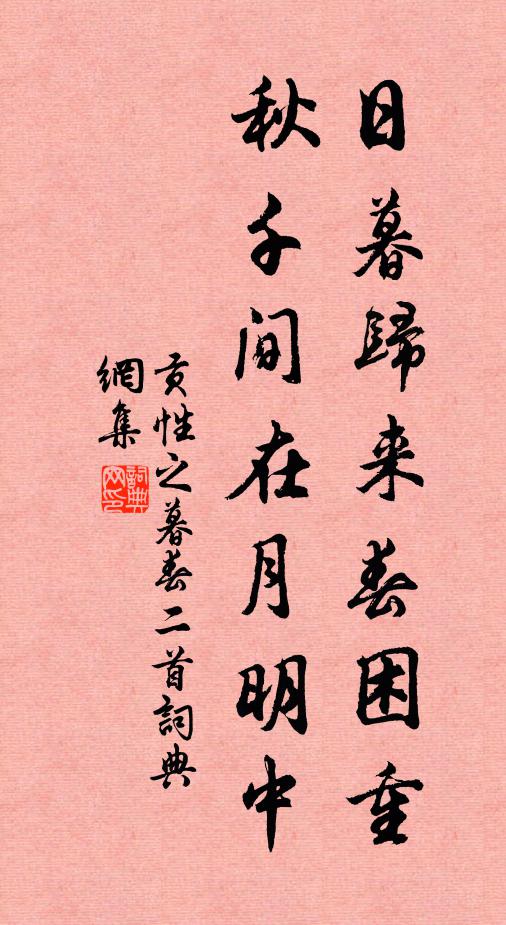 日暮歸来春困重
秋千间在月明中
贡性之暮春二首詞典
網集
詞典网印